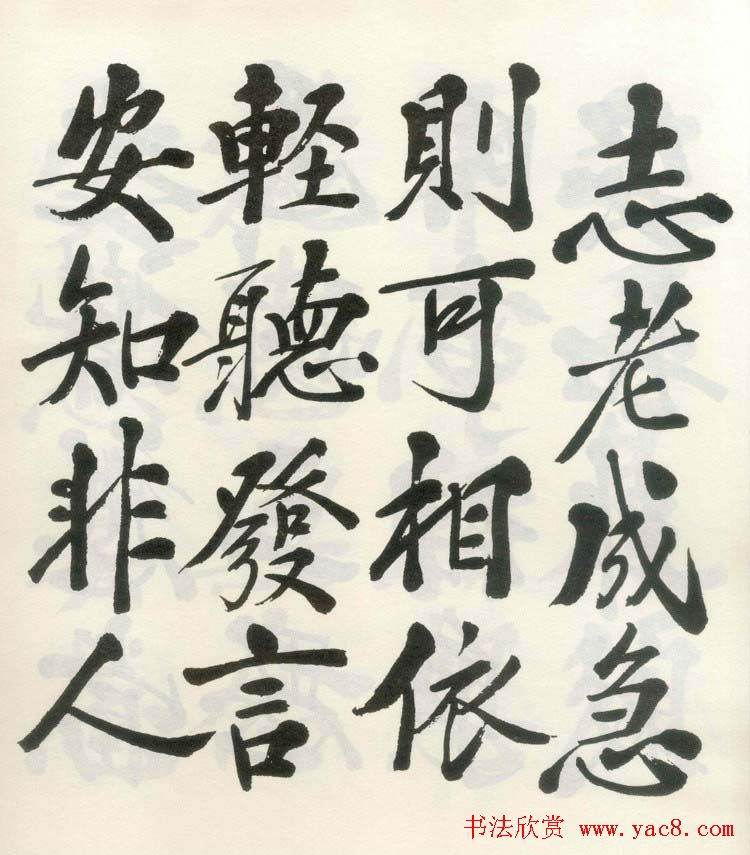 志老成急
則可相依
軽聽發言
安知非人
书法欣赏 www.yac8.com